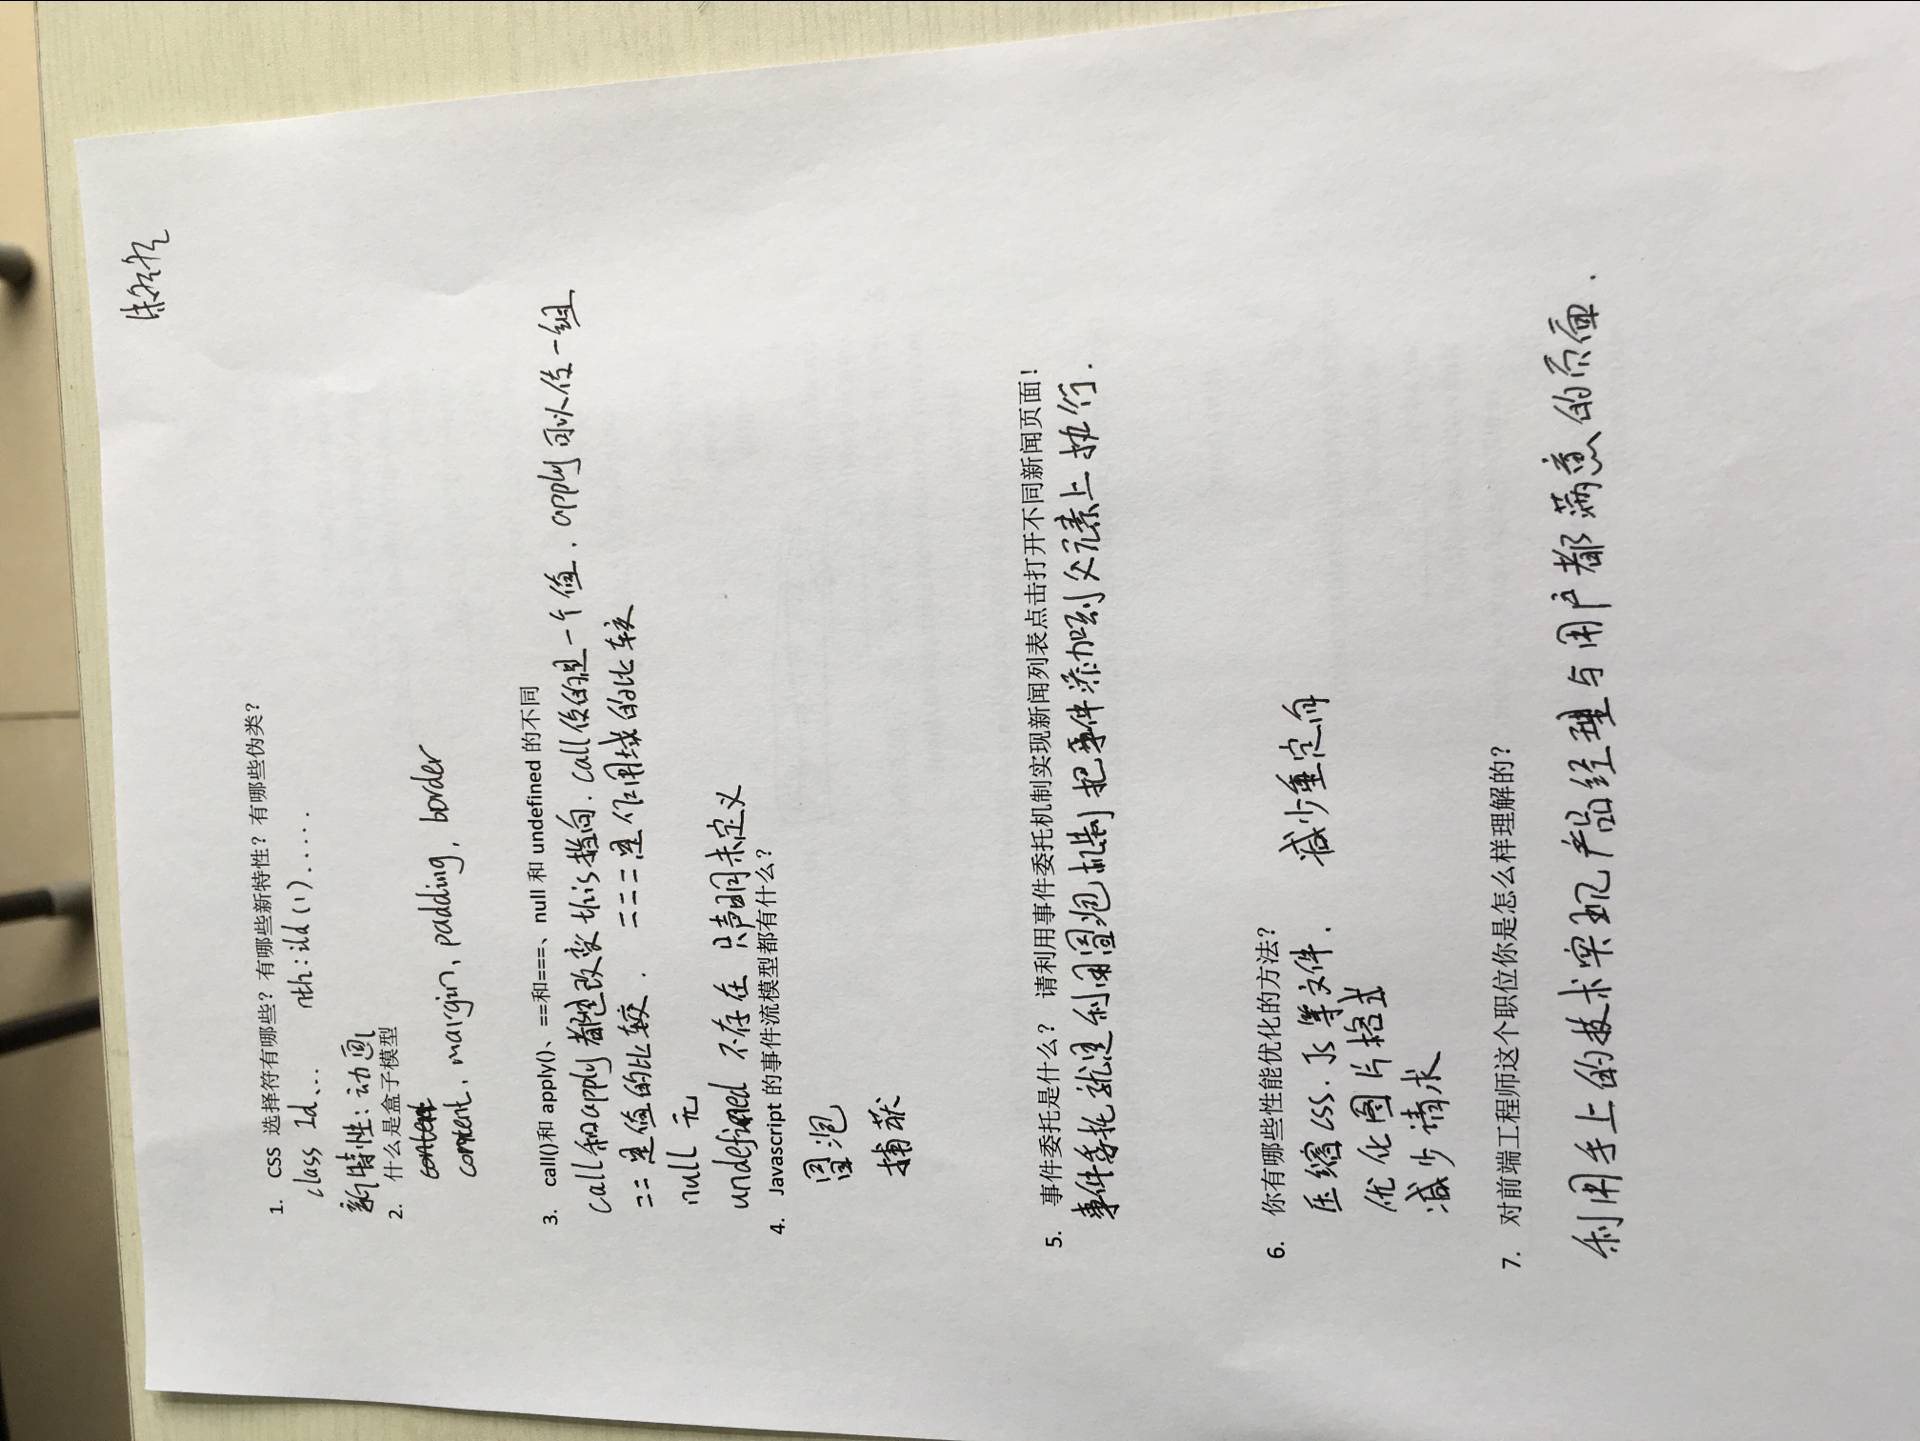 1. CSS 选择符有哪些？有哪些新特性？有哪些伪类？
class Id、... nth:ild(1).....
新特性：动画
2. 什么是盒子模型
content
content，margin，padding，border
3. call()和 apply()、==和===、null 和 undefined 的不同
call和apply都是改变this指向．call传的是一个值．apply可以传一组
== 是值的比较． === 是作用域的比较
null 无
undefined 不存在 只声明未定义
4. Javascript 的事件流模型都有什么？
冒泡
捕获
5. 事件委托是什么？ 请利用事件委托机制实现新闻列表点击打开不同新闻页面！
事件委托就是利用冒泡机制把事件添加到父元素上执行．
6. 你有哪些性能优化的方法？
压缩css．Js等文件． 减少重定向
优化图片格式
减少请求
7. 对前端工程师这个职位你是怎么样理解的？
利用手上的技术实现产品经理与用户都满意的页面．